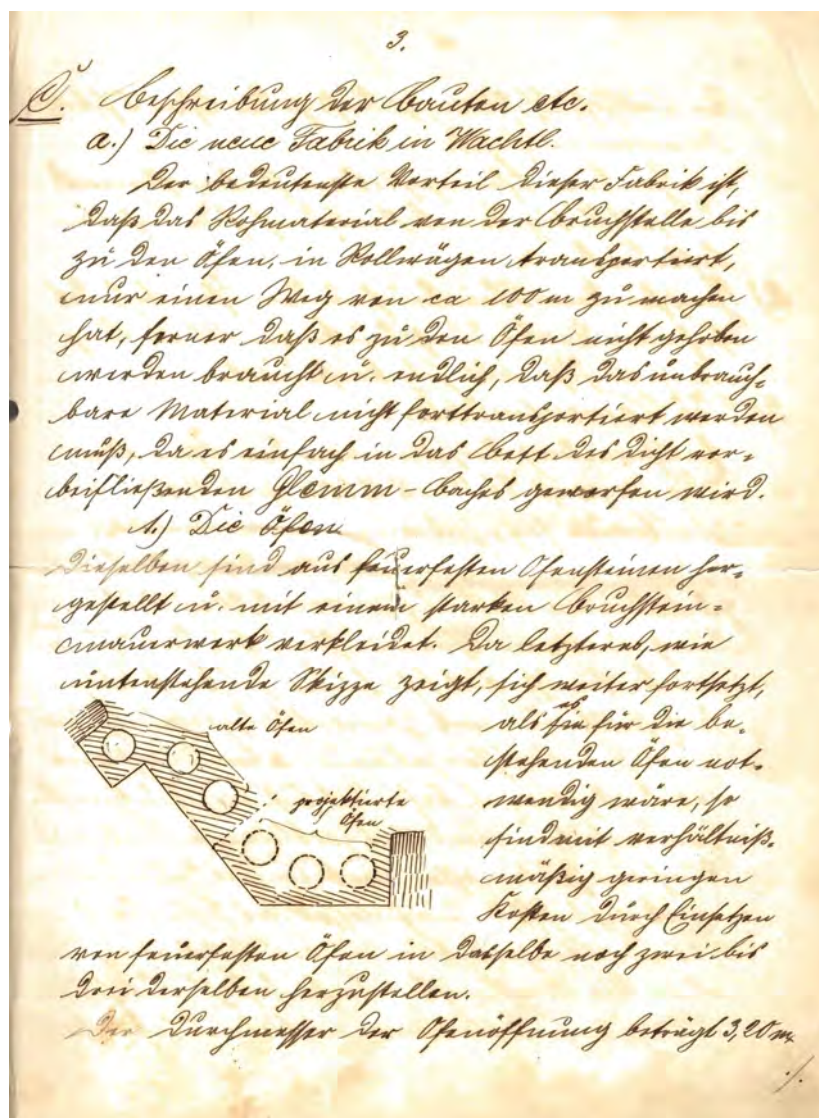 3.
C. Beschreibung der Bauten etc.
a.) Die neue Fabrik in Wachtl.
Der bedeutenste Vorteil dieser Fabrik ist,
daß das Rohmaterial von der Bruchstelle bis
zu den Öfen, in Rollwägen transportiert,
nur einen Weg von ca 100 m zu machen
hat, ferner daß es zu den Öfen nicht gehoben
werden braucht u. endlich, daß das unbrauch-
bare Material nicht forttransportiert werden
muß, da es einfach in das Bett des dicht vor-
beifließenden Glemm-Baches geworfen wird.
1.) Die Öfen
Dieselben sind aus feuerfesten Ofensteinen her-
gestellt u. mit einem starken Bruchstein-
mauerwerk verkleidet. Da letzteres, wie
untenstehende Skizze zeigt, sich weiter fortsetzt,
alte Öfen
projektierte
Öfen
als es für die be-
stehenden Öfen not-
wendig wäre, so
sind mit verhältniß-
mäßig geringen
Kosten durch Einsetzen
von feuerfesten Öfen in dasselbe noch zwei bis
drei derselben herzustellen.
Der Durchmesser der Ofenöffnung beträgt 3,20 m.
./.